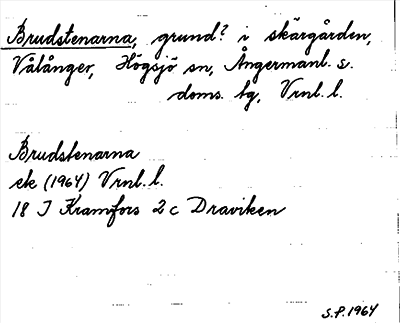 Brudstenarna, grund? i skärgården,
Vålånger, Högsjö sn, Ångermanl. s.
doms. tg, Vrnl. l.
Brudstenarna
ek (1964) Vrnl. l.
18 J Kramfors 2 c Draviken
S.P. 1964